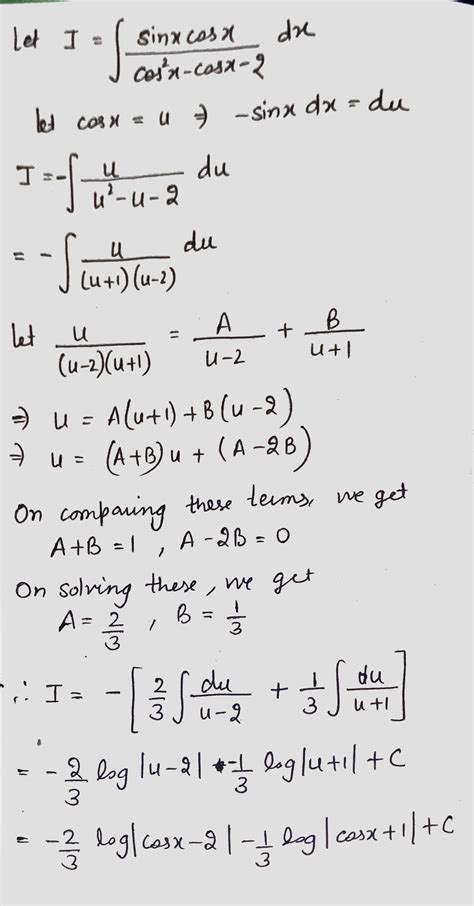 let I = ∫ sinx cosx / (cos²x - cosx - 2) dx
let cosx = u ⇒ -sinx dx = du
I = -∫ u / (u² - u - 2) du
= -∫ u / ((u+1)(u-2)) du
let u / ((u-2)(u+1)) = A / (u-2) + B / (u+1)
⇒ u = A(u+1) + B(u-2)
⇒ u = (A+B)u + (A-2B)
On comparing these terms, we get
A+B = 1 , A-2B = 0
On solving these, we get
A = 2/3 , B = 1/3
∴ I = -[2/3 ∫ du/(u-2) + 1/3 ∫ du/(u+1)]
= -2/3 log|u-2| -1/3 log|u+1| + C
= -2/3 log|cosx-2| - 1/3 log|cosx+1| + C